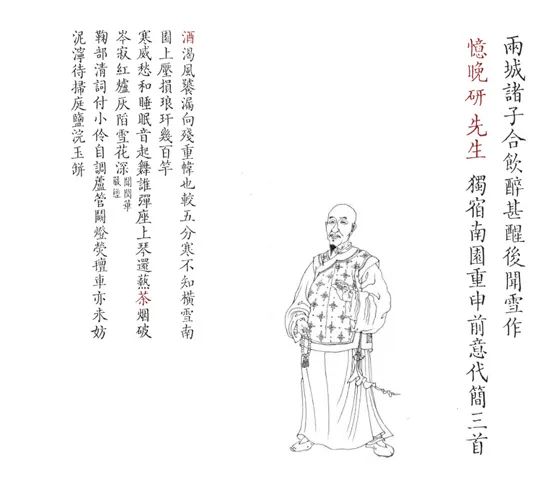 兩城諸子合飲醉甚醒後聞雪作
憶晚研先生 獨宿南園重申前意代簡三首
酒渴風饕漏向殘重幃也較五分寒不知橫雪南
園上壓損琅玕幾百竿
寒威愁和睡眠音起舞誰彈座上琴還爇茶烟破
岑寂紅爐灰陷雪花深
鞠部清詞付小伶自調蘆管鬭燈熒壇車亦未妨
泥濘待掃庭鹽浣玉餅